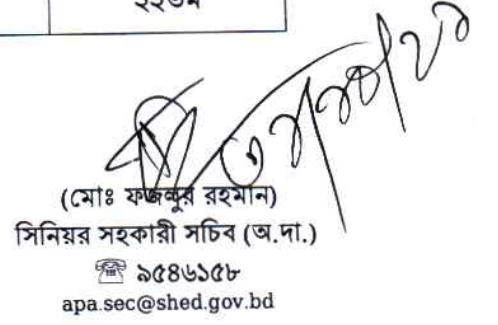 (মোঃ ফজলুর রহমান)
সিনিয়র সহকারী সচিব (অ.দা.)
☏ ৯৫৪৬১৫৮
apa.sec@shed.gov.bd